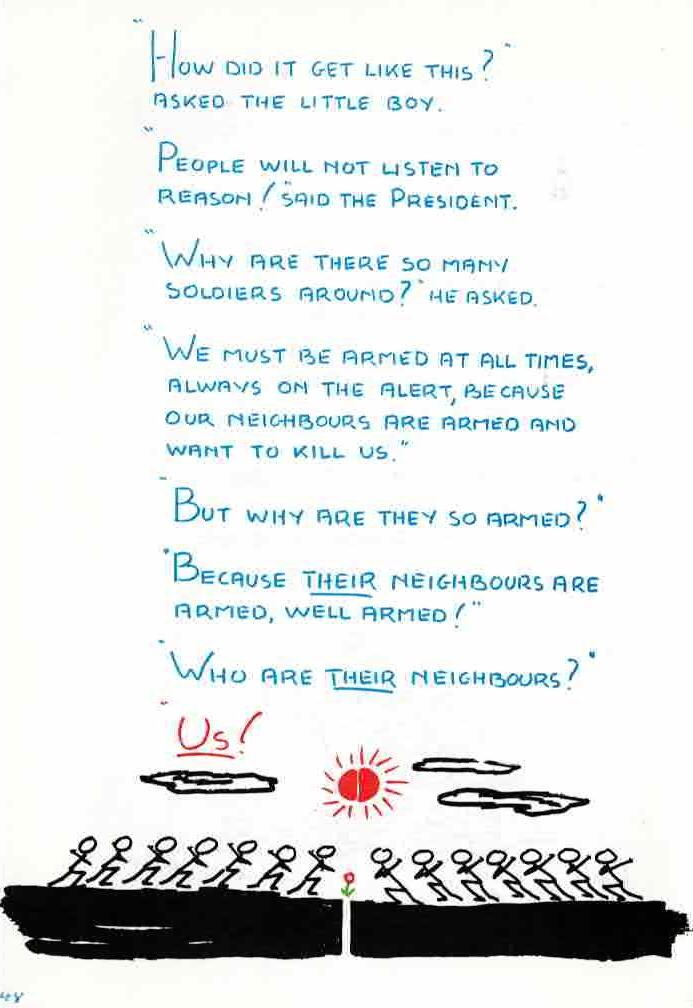 "How did it get like this?"
asked the little boy.
"People will not listen to
reason!" said the President.
"Why are there so many
soldiers around?" he asked.
"We must be armed at all times,
always on the alert, because
our neighbours are armed and
want to kill us."
"But why are they so armed?"
"Because their neighbours are
armed, well armed!"
"Who are their neighbours?"
"Us!
48